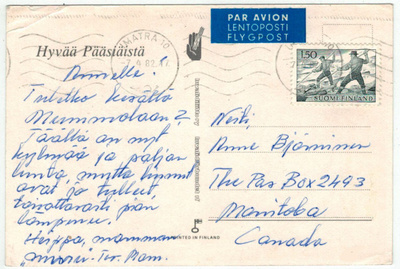 IMATRA 10
7.4.82.17
PAR AVION
LENTOPOSTI
FLYGPOST
1,50
SUOMI FINLAND
Hyvää Pääsiäistä
Annelle.
Tulitko keväällä
Mummolaan?
Täällä on nyt
kylmää ja paljon
lunta, mutta linnut
ovat jo tulleet,
toivottavasti pian
lämpenee.
Heippa, mamman
Mam.
Neiti,
Anne Björninen
The Pas Box 2493
Manitoba
Canada
PRINTED IN FINLAND